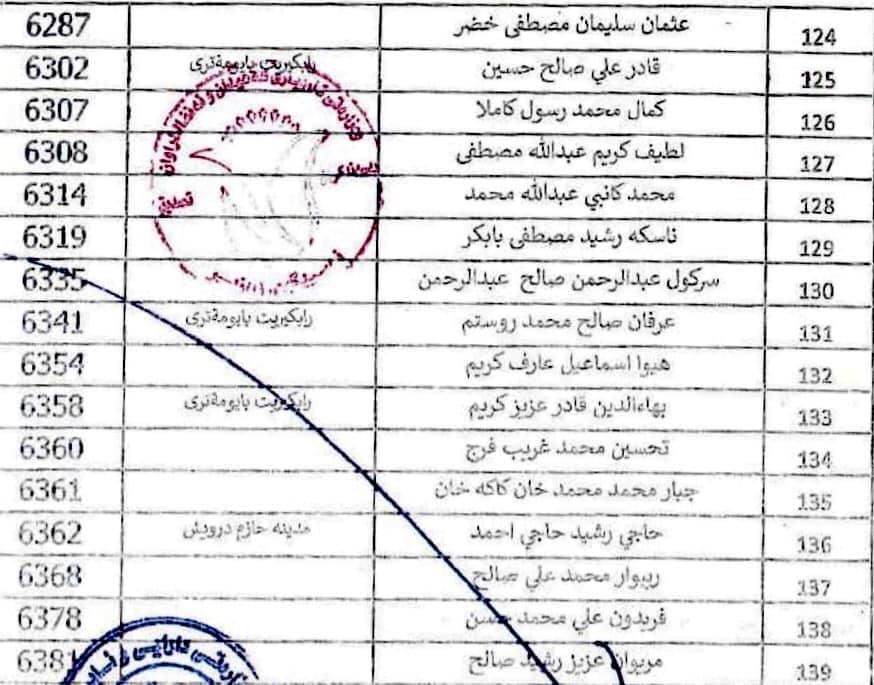 124 عثمان سليمان مصطفى خضر 6287
125 قادر علي صالح حسين رابكيريت بايومةترى 6302
126 كمال محمد رسول كاملا 6307
127 لطيف كريم عبدالله مصطفى 6308
128 محمد كانبي عبدالله محمد 6314
129 ناسكه رشيد مصطفى بابكر 6319
130 سركول عبدالرحمن صالح عبدالرحمن 6335
131 عرفان صالح محمد روستم رابكيريت بايومةترى 6341
132 هيوا اسماعيل عارف كريم 6354
133 بهاءالدين قادر عزيز كريم رابكيريت بايومةترى 6358
134 تحسين محمد غريب فرج 6360
135 جبار محمد محمد خان كاكه خان 6361
136 حاجي رشيد حاجي احمد مدينه حازم درويش 6362
137 ريبوار محمد علي صالح 6368
138 فريدون علي محمد حسن 6378
139 مريوان عزيز رشيد صالح